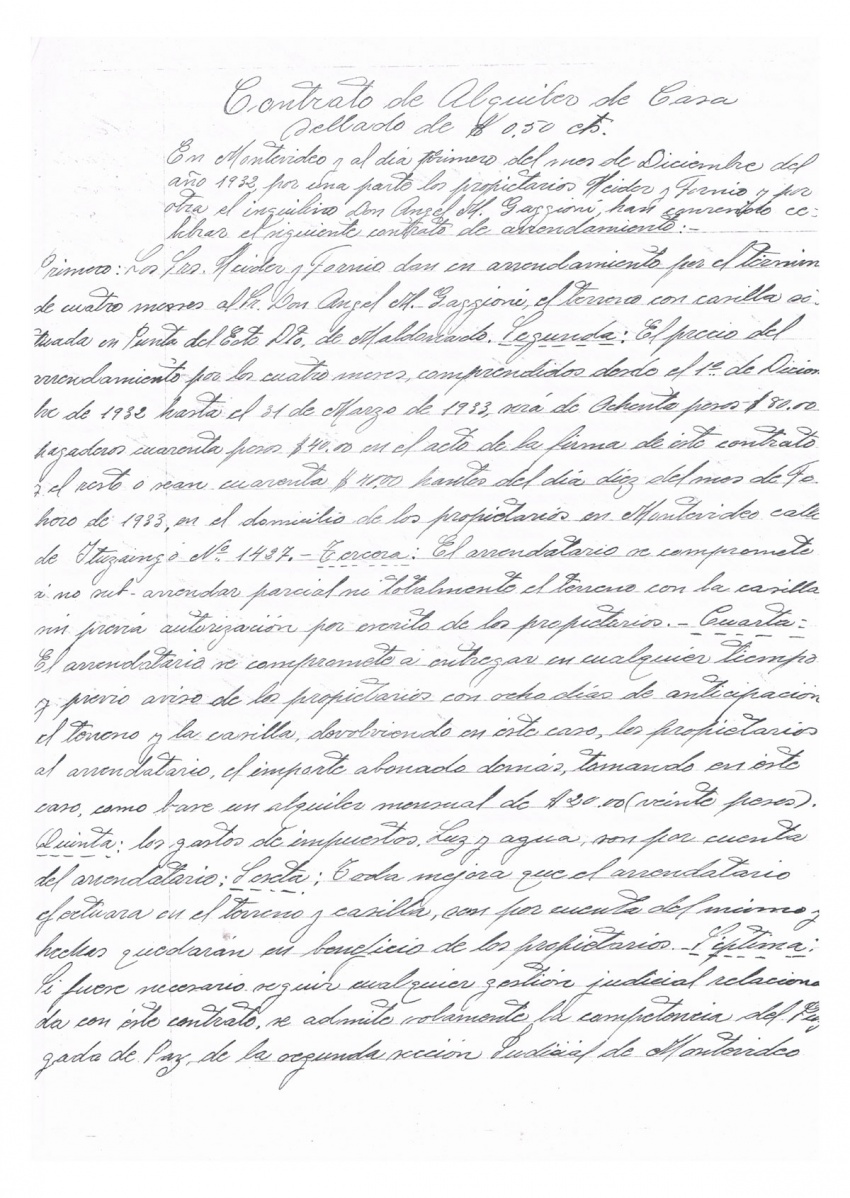 Contrato de Alquiler de Casa
Sellado de $ 0.50 cts.
En Montevideo y al día primero del mes de Diciembre del
año 1932, por una parte los propietarios Heider y Fornio y por
otra el inquilino Don Angel M. Gaggioni, han convenido ce-
lebrar el siguiente contrato de arrendamiento:-
Primero: Los Srs. Heider y Fornio dan en arrendamiento por el términ
de cuatro meses al Sr. Don Angel M. Gaggioni, el terreno con casilla si-
tuada en Punta del Este Dto. de Maldonado. Segunda: El precio del
arrendamiento por los cuatro meses, comprendidos desde el 1º de Diciem
bre de 1932 hasta el 31 de Marzo de 1933, será de Ochenta pesos $ 80.00
pagaderos cuarenta pesos $ 40.00 en el acto de la firma de este contrato
y el resto o sean cuarenta $ 40.00 hantes del día diez del mes de Fe-
brero de 1933, en el domicilio de los propietarios en Montevideo calle
de Ituzaingó Nº 1437.- Tercera: El arrendatario se compromete
á no sub-arrendar parcial ni totalmente el terreno con la casilla
sin previa autorización por escrito de los propietarios. - Cuarta:
El arrendatario se compromete á entregar en cualquier tiempo
y previo aviso de los propietarios con ocho días de anticipación
el terreno y la casilla, devolviendo en éste caso, los propietarios
al arrendatario, el importe abonado demás, tomando en éste
caso, como base un alquiler mensual de $ 20.00 (veinte pesos).
Quinta: los gastos de impuestos, Luz y agua, son por cuenta
del arrendatario; Sexta: Toda mejora que el arrendatario
efectuara en el terreno y casilla, son por cuenta del mismo y
hechas quedarán en beneficio de los propietarios. - Séptima:
Si fuese necesario seguir cualquier gestión judicial relaciona
da con éste contrato, se admite solamente la competencia del Juz
gado de Paz, de la segunda sección Judicial de Montevideo